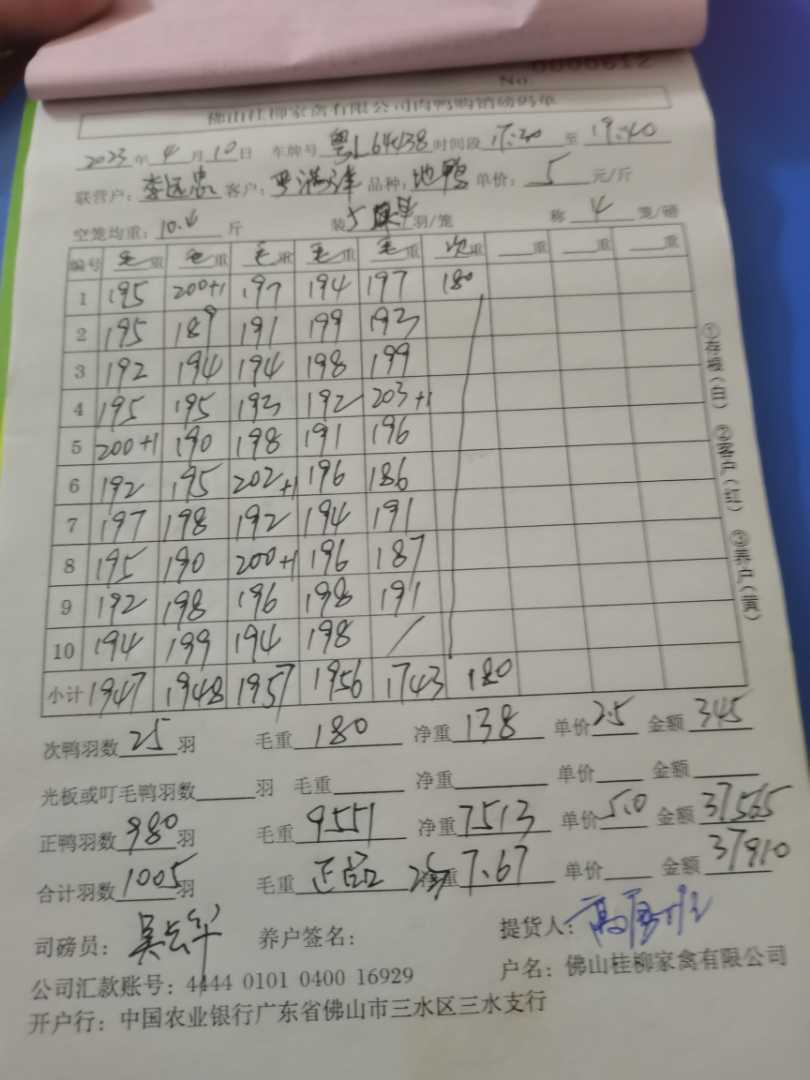 No 0000612
佛山桂柳家禽有限公司肉鸭购销磅码单
2023年4月10日 车牌号 粤L64438 时间段 17:20 至 19:40
联营户: 李远忠 客户: 罗满洋 品种: 地鸭 单价: 5 元/斤
空笼均重: 10.4 斤 装 5 羽/笼 称 4 笼/磅
编号 毛重 毛重 毛重 毛重 毛重 次重 重 重 重
1 195 200+1 197 194 197 180
2 195 189 191 199 193
3 192 194 194 198 199
4 195 195 193 192 203+1
5 200+1 190 198 191 196
6 192 195 202+1 196 186
7 197 198 192 194 191
8 195 190 200+1 196 187
9 192 198 196 198 191
10 194 199 194 198 /
小计 1947 1948 1957 1956 1743 180
次鸭羽数 25 羽 毛重 180 净重 138 单价 2.5 金额 345
光板或叮毛鸭羽数 羽 毛重 净重 单价 金额
正鸭羽数 980 羽 毛重 9551 净重 7513 单价 5.0 金额 37565
合计羽数 1005 羽 毛重 正品 净重 7.67 单价 金额 37910
司磅员: 吴云华 养户签名: 提货人:
公司汇款账号: 4444 0101 0400 16929 户名: 佛山桂柳家禽有限公司
开户行: 中国农业银行广东省佛山市三水区三水支行
①存根(白) ②客户(红) ③养户(黄)